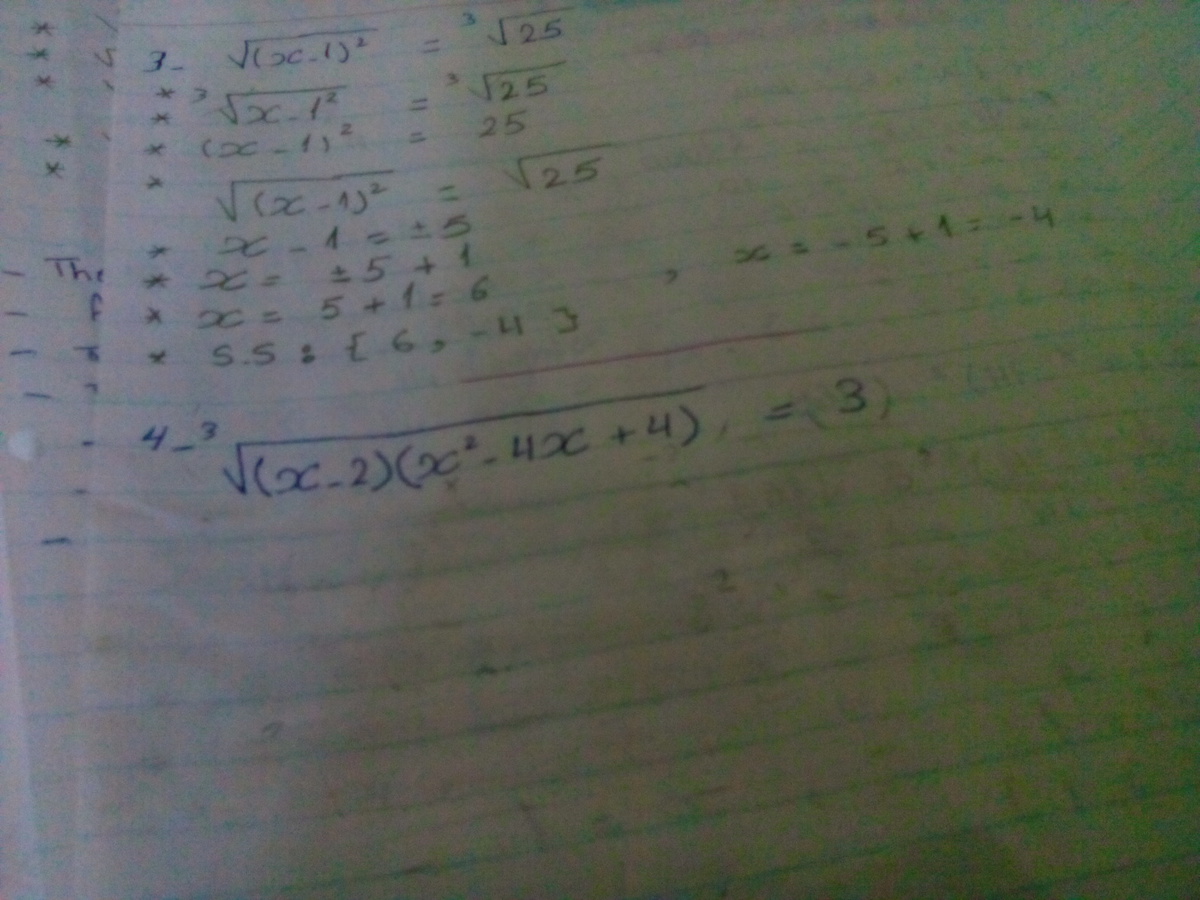 3- √(x-1)² = ³√25
* ³√x-1² = ³√25
* (x-1)² = 25
* √(x-1)² = √25
* x-1 = ±5
* x = ±5 + 1
* x = 5+1 = 6 , x = -5+1 = -4
* S.S : { 6, -4 }
4- ³√(x-2)(x²-4x+4) = 3
- The